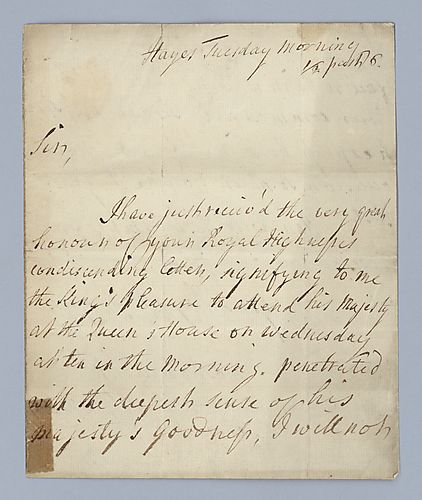 Hayes Tuesday Morning
1/2 past 6.
Sir,
I have just receiv'd the very great
honour of your Royal Highness's
condiscending letter, signifying to me
the King's pleasure to attend his Majesty
at the Queen's House on Wednesday
at ten in the Morning. penetrated
with the deepest sense of his
Majesty's Goodness, I will not